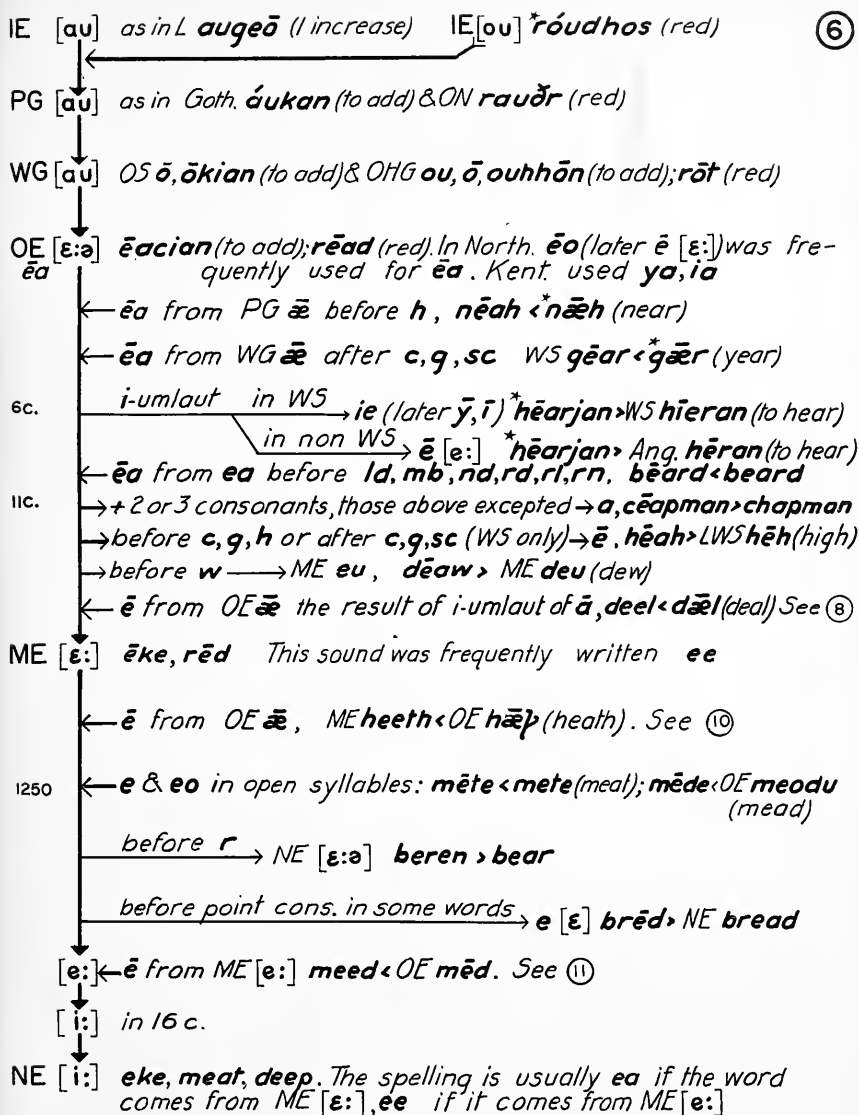 IE [au] as in L augeō (I increase) IE[ou] *róudhos (red) ⑥
PG [au] as in Goth. áukan (to add) & ON rauðr (red)
WG [au] OS ō, ōkian (to add) & OHG ou, ō, ouhhōn (to add); rōt (red)
OE [ɛ:ə] ēacian (to add); rēad (red). In North. ēo (later ē [ɛ:]) was fre-
ēa quently used for ēa. Kent. used ya, ia
← ēa from PG ǣ before h, nēah < *nǣh (near)
← ēa from WG ǣ after c, g, sc WS gēar < *gǣr (year)
6c. i-umlaut in WS → ie (later ȳ, ī) *hēarjan > WS hīeran (to hear)
in non WS → ē [e:] *hēarjan > Ang. hēran (to hear)
← ēa from ea before ld, mb, nd, rd, rl, rn, bēard < beard
11c. → + 2 or 3 consonants, those above excepted → a, cēapman > chapman
→ before c, g, h or after c, g, sc (WS only) → ē, hēah > LWS hēh (high)
→ before w → ME eu, dēaw > ME deu (dew)
← ē from OE ǣ the result of i-umlaut of ā, deel < dǣl (deal) See ⑧
ME [ɛ:] ēke, rēd This sound was frequently written ee
← ē from OE ǣ, ME heeth < OE hǣþ (heath). See ⑩
1250 ← e & eo in open syllables: mēte < mete (meat); mēde < OE meodu
(mead)
before r → NE [ɛ:ə] beren > bear
before point cons. in some words → e [ɛ] brēd > NE bread
[e:] ← ē from ME [e:] meed < OE mēd. See ⑪
[i:] in 16 c.
NE [i:] eke, meat, deep. The spelling is usually ea if the word
comes from ME [ɛ:], ee if it comes from ME [e:]